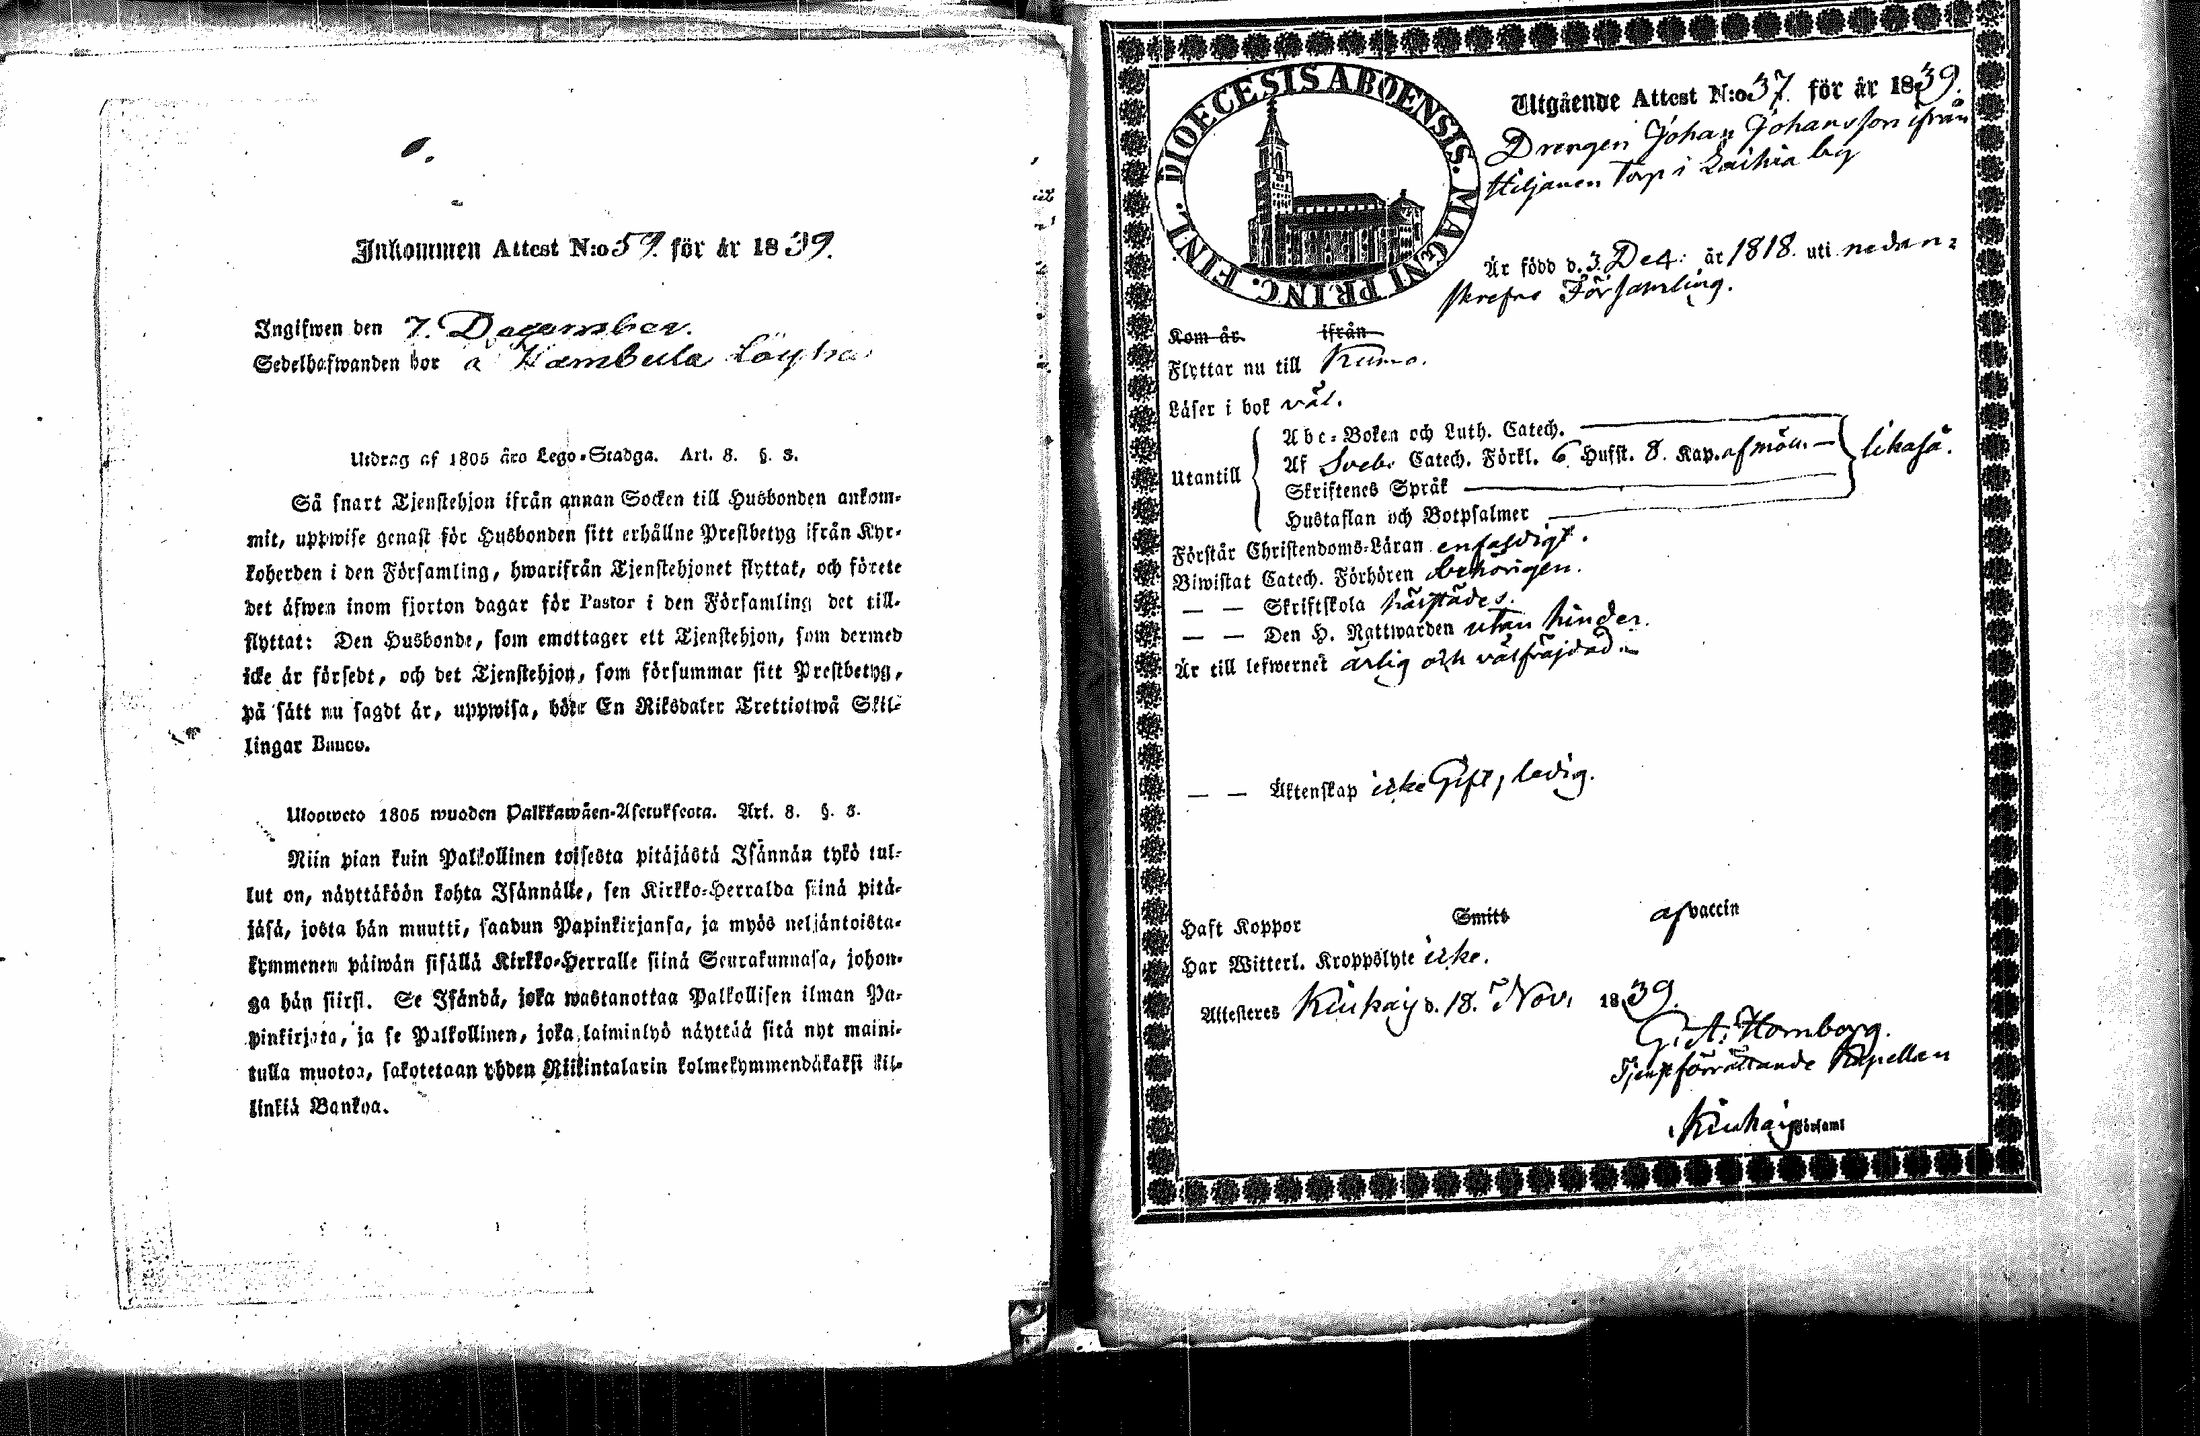 Inkommen Attest N:o 59. för år 1839.
Ingifwen den 7. December.
Sedelhafwanden bor å Kambeula Löyhä
Utdrag af 1805 års Lego-Stadga. Art. 8. §. 3.
Så snart Tjenstehjon ifrån annan Socken till Husbonden ankom-
mit, uppwise genast för Husbonden sitt erhållne Prestbetyg ifrån Kyr-
koherden i den Församling, hwarifrån Tjenstehjonet flyttat, och förete
det äfwen inom fjorton dagar för Pastor i den Församling det till-
flyttat: Den Husbonde, som emottager ett Tjenstehjon, som dermed
icke är försedt, och det Tjenstehjon, som försummar sitt Prestbetyg,
på sätt nu sagdt är, uppwisa, böte En Riksdaler Trettiotwå Skil-
lingar Banco.
Ulosweto 1805 wuoden Palkkawäen-Asetuksesta. Art. 8. §. 3.
Niin pian kuin Palkollinen toisesta pitäjästä Isännän tykö tul-
lut on, näyttäköön kohta Isännälle, sen Kirkko-Herralda siinä pitä-
jäsä, josta hän muutti, saadun Papinkirjansa, ja myös neljäntoista-
kymmenen päiwän sisällä Kirkko-Herralle siinä Seurakunnasa, johon-
ga hän siirsi. Se Isändä, joka wastanottaa Palkollisen ilman Pa-
pinkirjata, ja se Palkollinen, joka laiminlyö näyttää sitä nyt maini-
tulla muotoa, sakotetaan yhden Riikintalarin kolmekymmendäkaksi kil-
linkiä Bankoa.
DIOECESIS ABOENSIS. MAGNI PRINC. FINL.
Utgående Attest N:o 37. för år 1839.
Drengen Johan Johansson ifrån
Hiljanen Torp i Laihia by
Är född d. 3. Dec. år 1818. uti nedan-
skrefne Församling.
Kom år ifrån
Flyttar nu till Kumo.
Läser i bok väl.
Abc-Boken och Luth. Catech.
Utantill Af Sveb. Catech. Förkl. 6 Hufst. 8. Kap. likaså.
Skriftenes Språk
Hustaflan och Botpsalmer
Förstår Christendoms-Läran enfaldigt.
Biwistat Catech. Förhören behörigen.
— — Skriftskola härstädes.
— — Den H. Nattwarden utan hinder.
Är till lefwernet ärlig och välfräjdad.
— — Äktenskap icke Gift, ledig.
Haft Koppor Smitt af vaccin
Har Witterl. Kroppslyte icke.
Attesteres Kiukais d. 18. Nov. 1839.
G. A. Homborg.
Tjenstförrättande Kapellan
Kiukais Församl